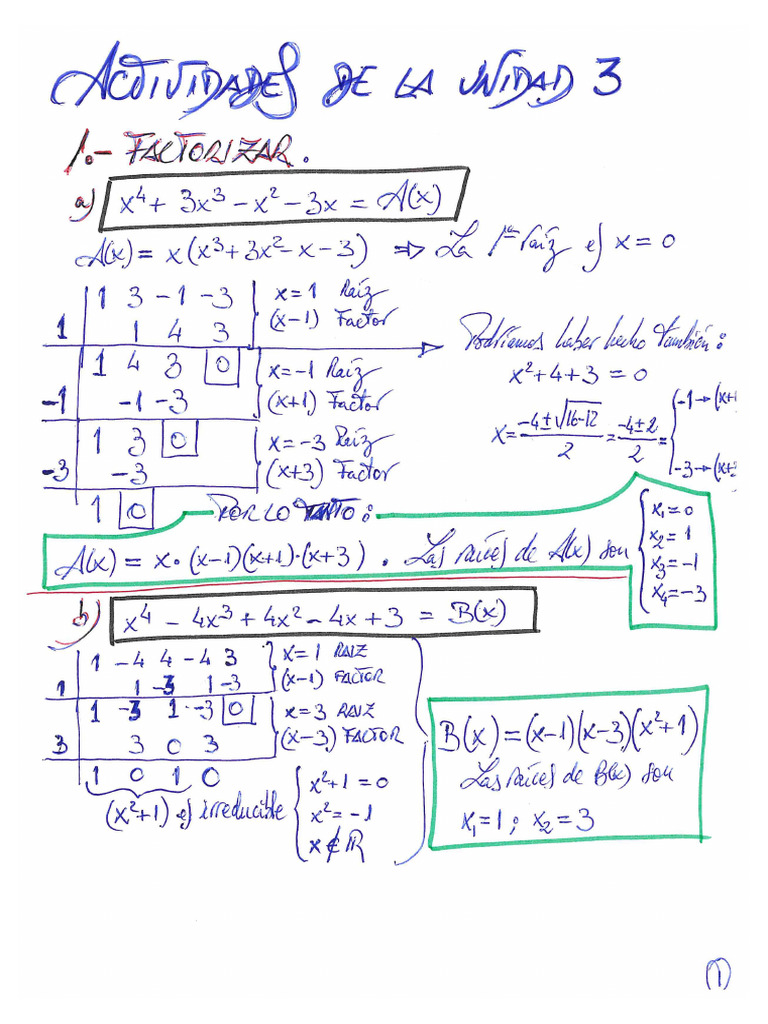 ACTIVIDADES DE LA UNIDAD 3
1.- FACTORIZAR.
a) x⁴ + 3x³ - x² - 3x = A(x)
A(x) = x(x³ + 3x² - x - 3) ⇒ La 1ª raíz es x = 0
1 3 -1 -3 x = 1 Raíz
1 1 4 3 (x-1) Factor
1 4 3 0 x = -1 Raíz
-1 -1 -3 (x+1) Factor
1 3 0 x = -3 Raíz
-3 -3 (x+3) Factor
1 0
Podríamos haber hecho también:
x² + 4 + 3 = 0
x = (-4 ± √(16-12))/2 = (-4 ± 2)/2 = { -1 → (x+
-3 → (x+
POR LO TANTO:
A(x) = x·(x-1)(x+1)·(x+3). Las raíces de A(x) son
x₁ = 0
x₂ = 1
x₃ = -1
x₄ = -3
b) x⁴ - 4x³ + 4x² - 4x + 3 = B(x)
1 -4 4 -4 3 x = 1 RAIZ
1 1 -3 1 -3 (x-1) FACTOR
1 -3 1 -3 0 x = 3 RAIZ
3 3 0 3 (x-3) FACTOR
1 0 1 0
(x²+1) es irreducible
x² + 1 = 0
x² = -1
x ∉ ℝ
B(x) = (x-1)(x-3)(x²+1)
Las raíces de B(x) son
x₁ = 1; x₂ = 3
1